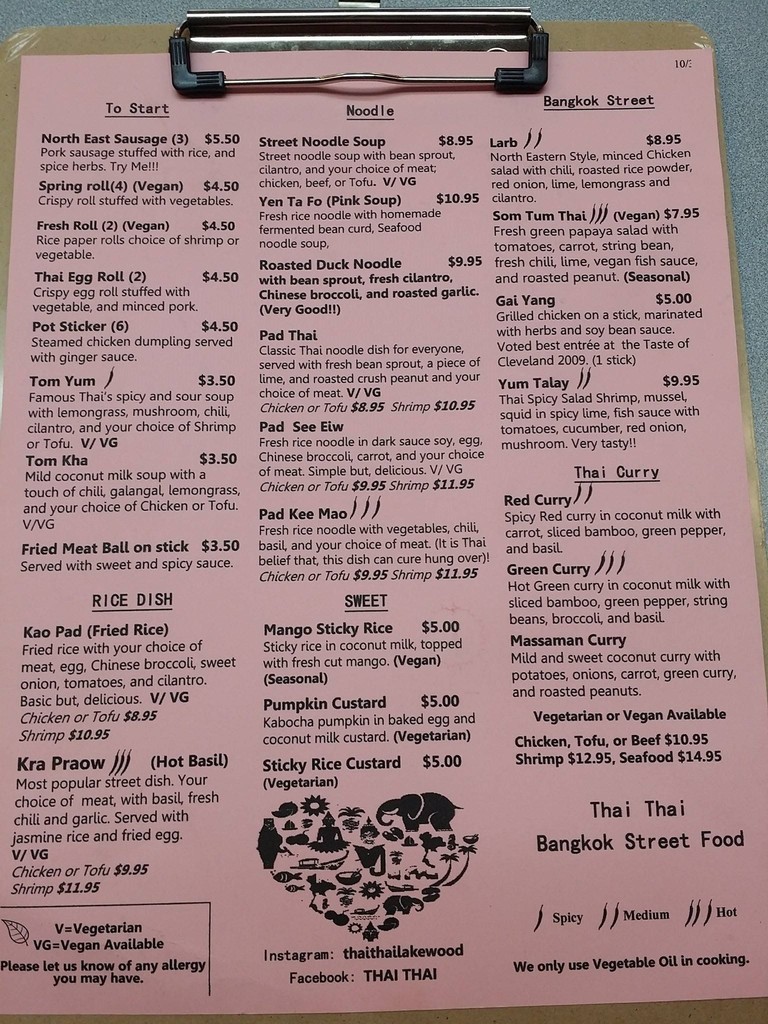 10/
To Start
North East Sausage (3) $5.50
Pork sausage stuffed with rice, and
spice herbs. Try Me!!!
Spring roll(4) (Vegan) $4.50
Crispy roll stuffed with vegetables.
Fresh Roll (2) (Vegan) $4.50
Rice paper rolls choice of shrimp or
vegetable.
Thai Egg Roll (2) $4.50
Crispy egg roll stuffed with
vegetable, and minced pork.
Pot Sticker (6) $4.50
Steamed chicken dumpling served
with ginger sauce.
Tom Yum $3.50
Famous Thai's spicy and sour soup
with lemongrass, mushroom, chili,
cilantro, and your choice of Shrimp
or Tofu. V/ VG
Tom Kha $3.50
Mild coconut milk soup with a
touch of chili, galangal, lemongrass,
and your choice of Chicken or Tofu.
V/VG
Fried Meat Ball on stick $3.50
Served with sweet and spicy sauce.
RICE DISH
Kao Pad (Fried Rice)
Fried rice with your choice of
meat, egg, Chinese broccoli, sweet
onion, tomatoes, and cilantro.
Basic but, delicious. V/ VG
Chicken or Tofu $8.95
Shrimp $10.95
Kra Praow (Hot Basil)
Most popular street dish. Your
choice of meat, with basil, fresh
chili and garlic. Served with
jasmine rice and fried egg.
V/ VG
Chicken or Tofu $9.95
Shrimp $11.95
V=Vegetarian
VG=Vegan Available
Please let us know of any allergy
you may have.
Noodle
Street Noodle Soup $8.95
Street noodle soup with bean sprout,
cilantro, and your choice of meat;
chicken, beef, or Tofu. V/ VG
Yen Ta Fo (Pink Soup) $10.95
Fresh rice noodle with homemade
fermented bean curd, Seafood
noodle soup,
Roasted Duck Noodle $9.95
with bean sprout, fresh cilantro,
Chinese broccoli, and roasted garlic.
(Very Good!!)
Pad Thai
Classic Thai noodle dish for everyone,
served with fresh bean sprout, a piece of
lime, and roasted crush peanut and your
choice of meat. V/ VG
Chicken or Tofu $8.95 Shrimp $10.95
Pad See Eiw
Fresh rice noodle in dark sauce soy, egg,
Chinese broccoli, carrot, and your choice
of meat. Simple but, delicious. V/ VG
Chicken or Tofu $9.95 Shrimp $11.95
Pad Kee Mao
Fresh rice noodle with vegetables, chili,
basil, and your choice of meat. (It is Thai
belief that, this dish can cure hung over)!
Chicken or Tofu $9.95 Shrimp $11.95
SWEET
Mango Sticky Rice $5.00
Sticky rice in coconut milk, topped
with fresh cut mango. (Vegan)
(Seasonal)
Pumpkin Custard $5.00
Kabocha pumpkin in baked egg and
coconut milk custard. (Vegetarian)
Sticky Rice Custard $5.00
(Vegetarian)
Instagram: thaithailakewood
Facebook: THAI THAI
Bangkok Street
Larb $8.95
North Eastern Style, minced Chicken
salad with chili, roasted rice powder,
red onion, lime, lemongrass and
cilantro.
Som Tum Thai (Vegan) $7.95
Fresh green papaya salad with
tomatoes, carrot, string bean,
fresh chili, lime, vegan fish sauce,
and roasted peanut. (Seasonal)
Gai Yang $5.00
Grilled chicken on a stick, marinated
with herbs and soy bean sauce.
Voted best entrée at the Taste of
Cleveland 2009. (1 stick)
Yum Talay $9.95
Thai Spicy Salad Shrimp, mussel,
squid in spicy lime, fish sauce with
tomatoes, cucumber, red onion,
mushroom. Very tasty!!
Thai Curry
Red Curry
Spicy Red curry in coconut milk with
carrot, sliced bamboo, green pepper,
and basil.
Green Curry
Hot Green curry in coconut milk with
sliced bamboo, green pepper, string
beans, broccoli, and basil.
Massaman Curry
Mild and sweet coconut curry with
potatoes, onions, carrot, green curry,
and roasted peanuts.
Vegetarian or Vegan Available
Chicken, Tofu, or Beef $10.95
Shrimp $12.95, Seafood $14.95
Thai Thai
Bangkok Street Food
Spicy Medium Hot
We only use Vegetable Oil in cooking.